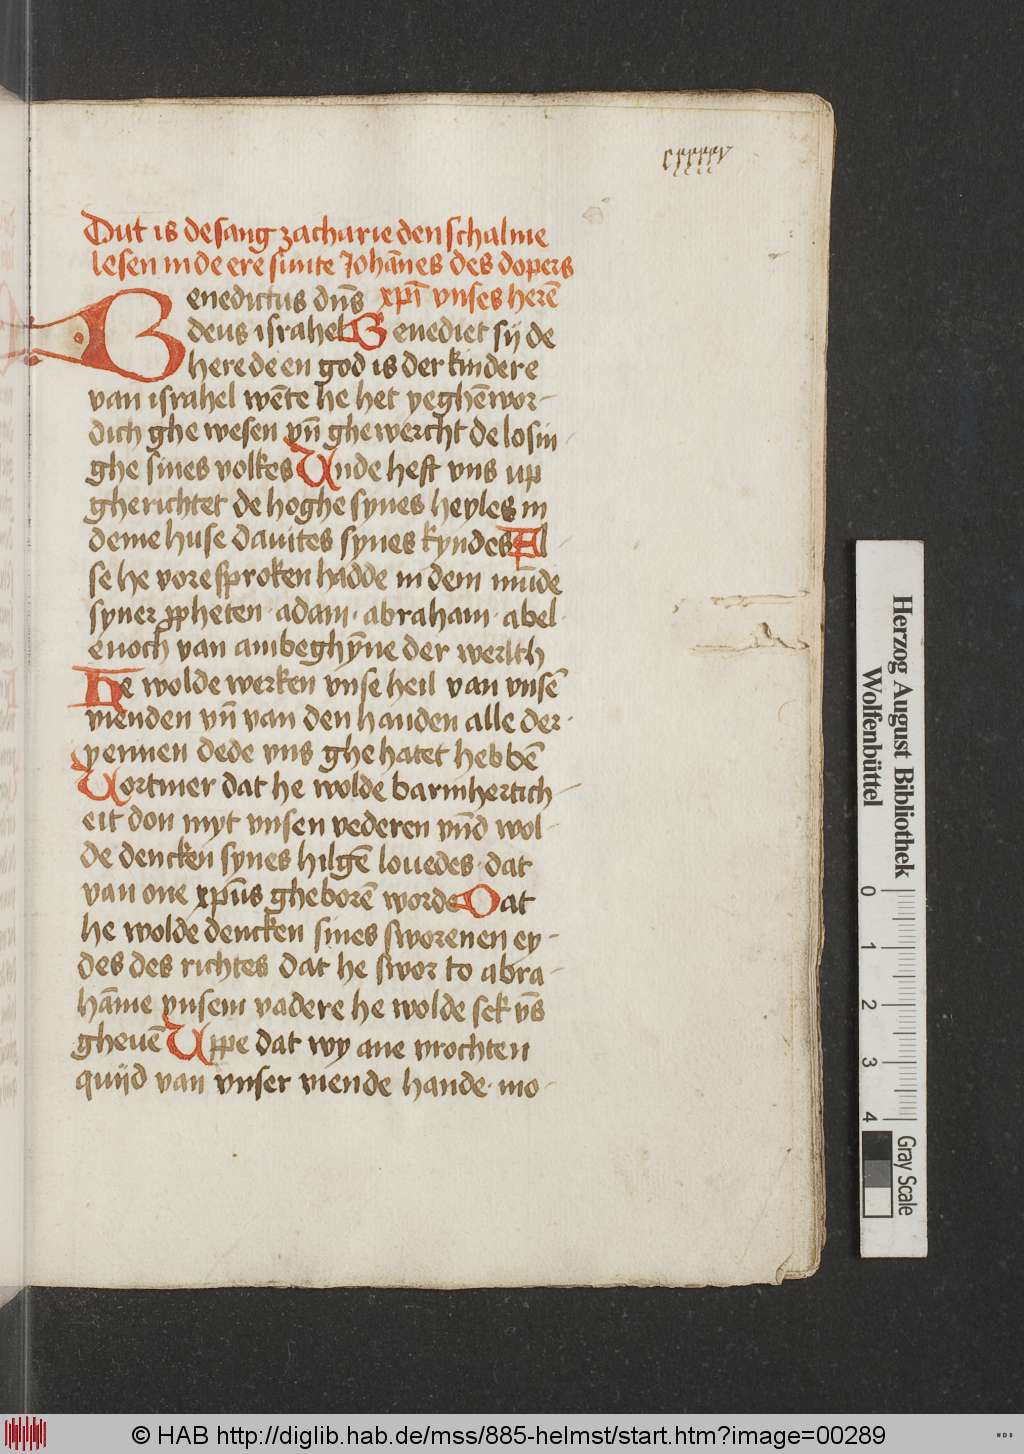 cxxxxv
Dut is de sang zacharie den schalme
lesen in de ere sunte Johānes des dopers
Benedictus dn̄s xp̄i vnses herē
deus israhel Benediet sij de
here de en god is der kindere
van israhel wēte he het yeghēwor-
dich ghe wesen vn̄ ghewercht de losin-
ghe sines volkes Unde heft vns up
gherichtet de hoghe synes heyles in
deme huse dauites synes kyndes Al-
se he vore sproken hadde in dem mūde
syner ꝓpheten · adam · abraham · abel ·
enoch van ambeghȳne der werlth
He wolde werken vnse heil van vnsē
vienden vn̄ van den handen alle der-
yennen dede vns ghe hatet hebbē
Vortmer dat he wolde barmhertich-
eit don myt vnsen vederen vn̄d wol-
de dencken synes hilgē louedes · dat
van one xp̄us gheborē worde Dat
he wolde dencken sines sworenen ey-
des des richtes dat he swor to abra-
hāme vnsem vadere he wolde sek vn̄s
gheuē Uppe dat wy ane vrochten
quijd van vnser viende hande · mo-
Herzog August Bibliothek
Wolfenbüttel
0 1 2 3 4
Gray Scale
© HAB http://diglib.hab.de/mss/885-helmst/start.htm?image=00289
WDB